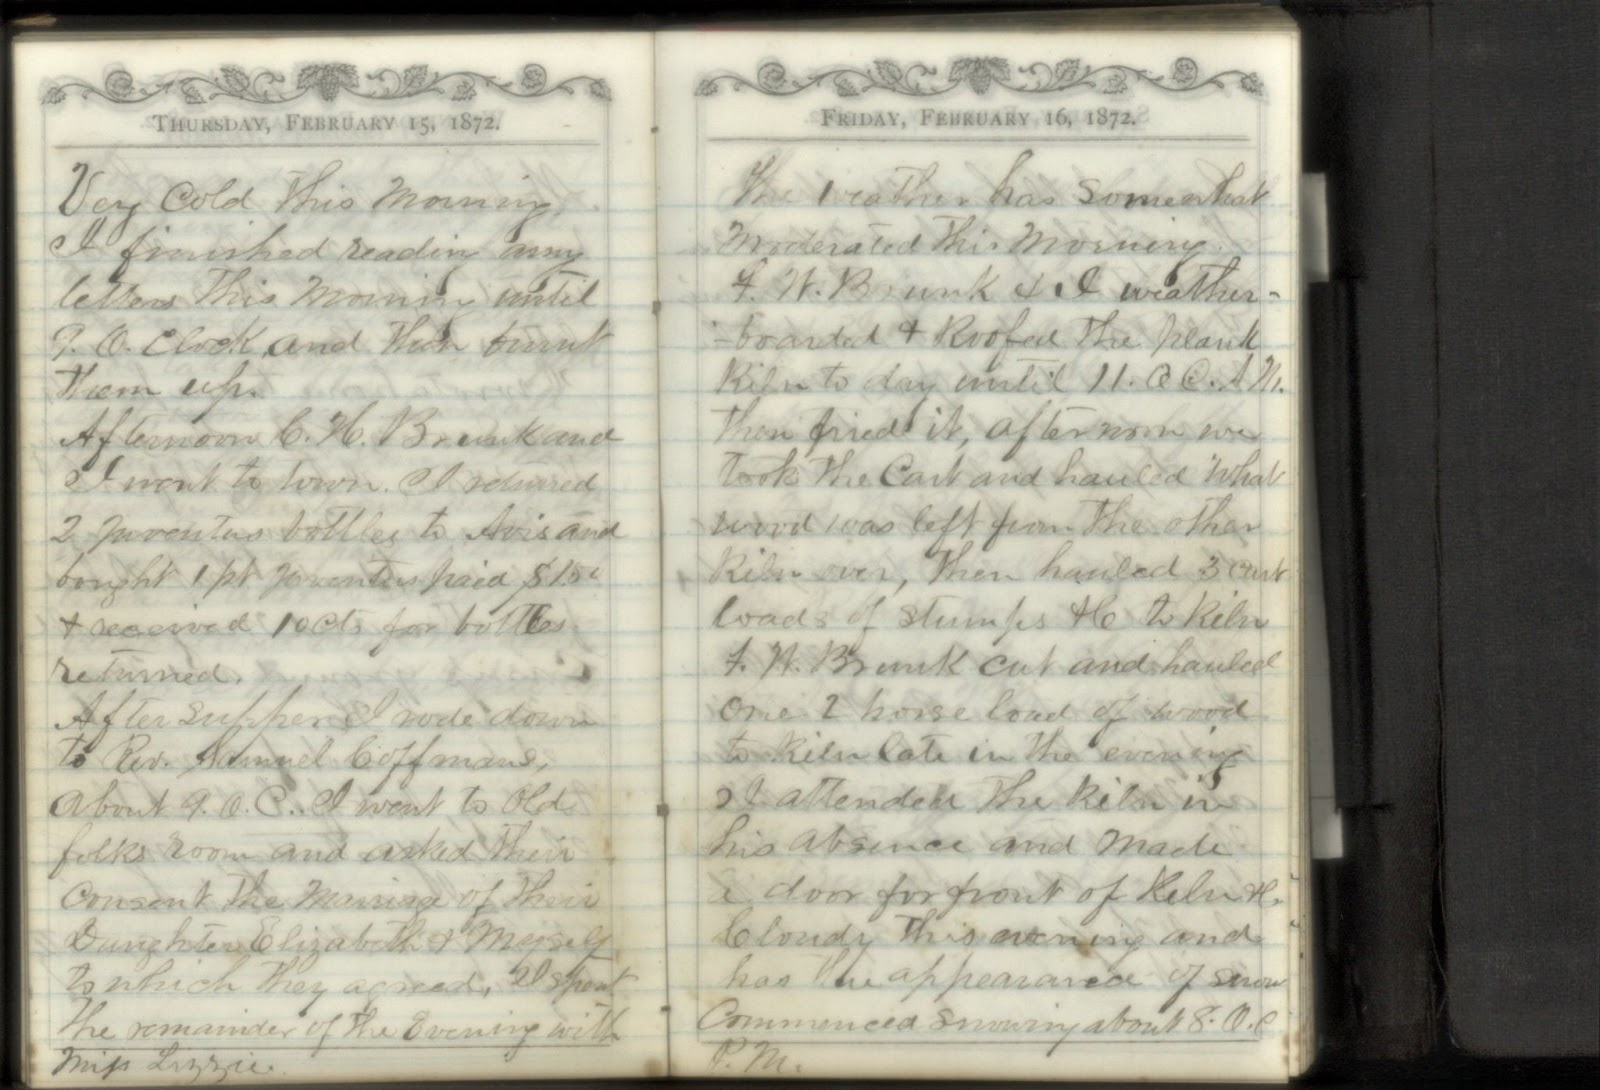 THURSDAY, FEBRUARY 15, 1872.
Very Cold This Morning
I finished reading my
letters This Morning until
9. O. Clock, and then burnt
them up.
Afternoon C. H. Brunk and
I went to town. I returned
2 bottles to Avis and
bought 1 pt paid $1.50
& received 10 cts for bottles
returned.
After supper I rode down
to Rev. Samuel Coffmans,
About 9. O. C.. I went to Old
folks room and asked their
Consent the Marriage of their
Daughter Elizabeth & Myself
to which they agreed, I spent
The remainder of the Evening with
Miss Lizzie.
FRIDAY, FEBRUARY 16, 1872.
The Weather has Somewhat
Moderated This Morning.
F. W. Brunk & I weather-
-boarded & Roofed The plank
Kiln to day until 11. O C. A M.
then fired it, afternoon we
took the Cart and hauled What
wood was left from The other
Kiln over, Then hauled 3 cart
loads of stumps &C to Kiln
F. W. Brunk cut and hauled
One 2 horse load of wood
to Kiln late in the evening
I attended The Kiln in
his absence and Made
a door for front of Kiln &c.
Cloudy This evening and
has the appearance of snow
Commenced snowing about 8. O. C
P. M.